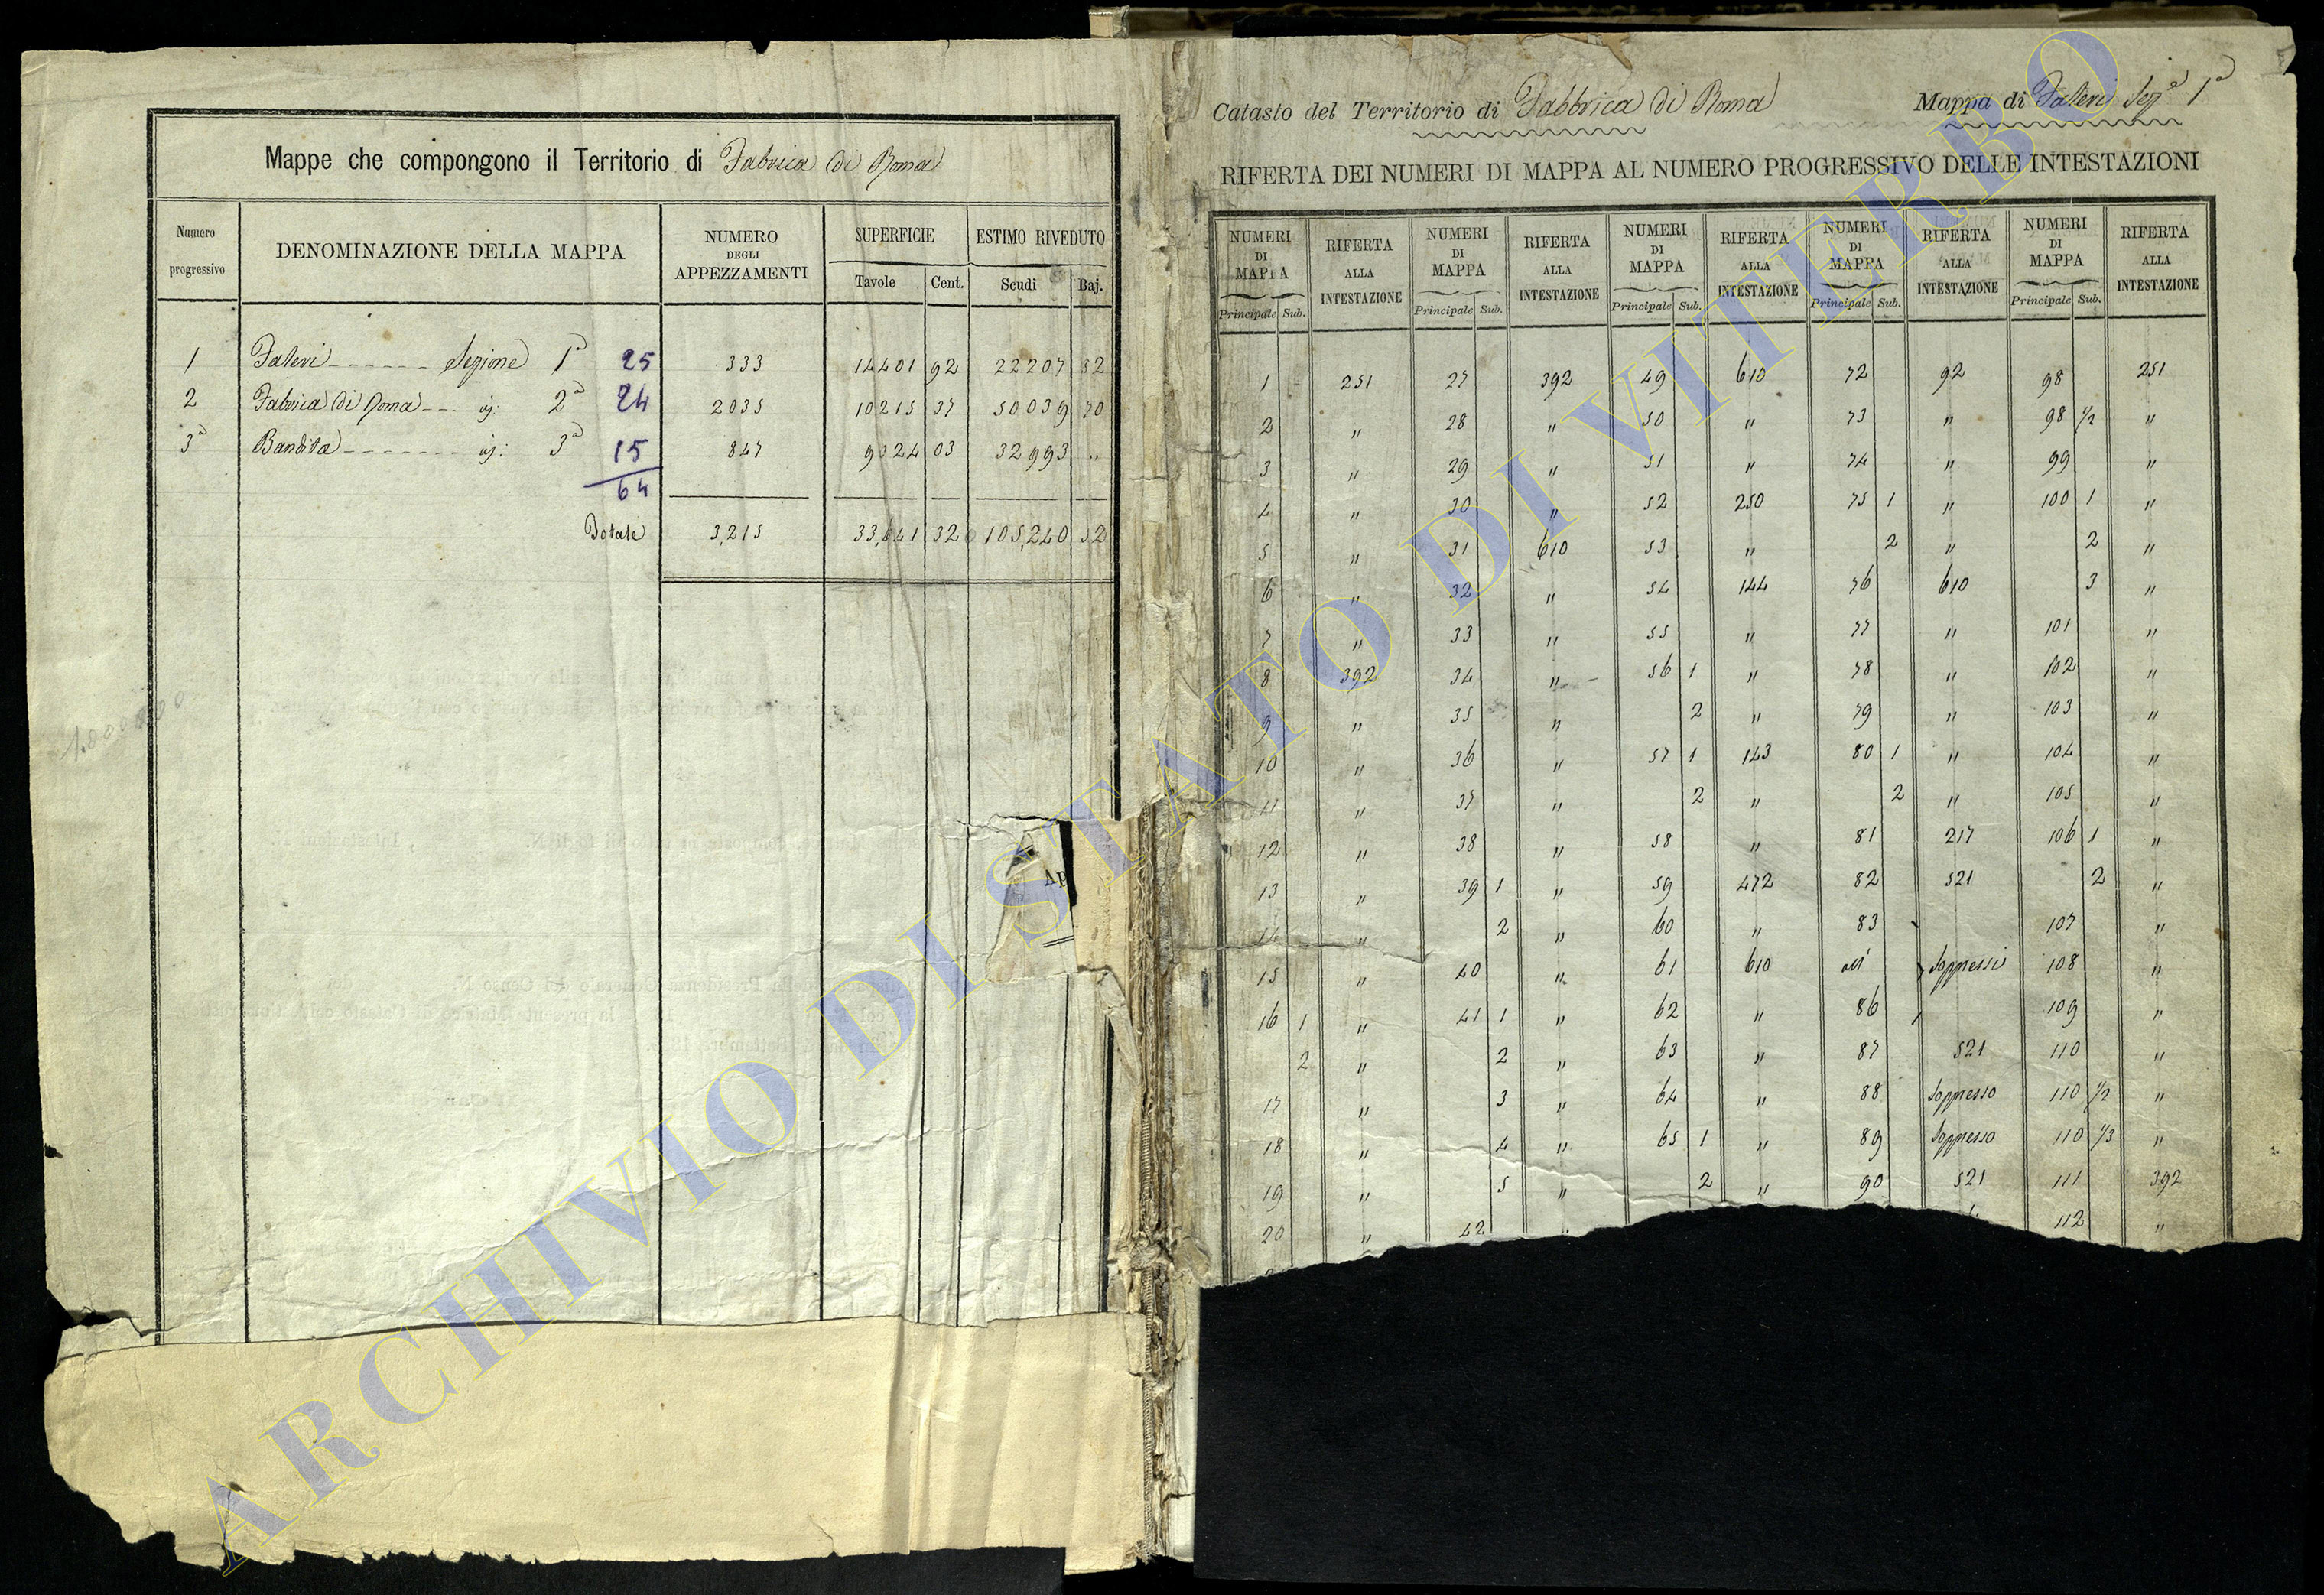 Mappe che compongono il Territorio di Fabrica di Roma
Numero progressivo | DENOMINAZIONE DELLA MAPPA | NUMERO DEGLI APPEZZAMENTI | SUPERFICIE | ESTIMO RIVEDUTO
Tavole | Cent. | Scudi | Baj.
1 Faleri ------ Sezione 1ª 25 333 14401 92 22207 82
2 Fabrica di Roma --- id: 2ª 24 2035 10215 37 50039 70
3ª Bandita ------- id: 3ª 15 847 9024 03 32993 "
64
Totale 3,215 33,641 32 105,240 52
Catasto del Territorio di Fabbrica di Roma Mappa di Faleri Sezª 1ª
RIFERTA DEI NUMERI DI MAPPA AL NUMERO PROGRESSIVO DELLE INTESTAZIONI
NUMERI DI MAPPA | RIFERTA ALLA INTESTAZIONE | NUMERI DI MAPPA | RIFERTA ALLA INTESTAZIONE | NUMERI DI MAPPA | RIFERTA ALLA INTESTAZIONE | NUMERI DI MAPPA | RIFERTA ALLA INTESTAZIONE | NUMERI DI MAPPA | RIFERTA ALLA INTESTAZIONE
Principale Sub. | Principale Sub. | Principale Sub. | Principale Sub. | Principale Sub.
1 251 27 392 49 610 72 92 98 251
2 " 28 " 50 " 73 " 98 1/2 "
3 " 29 " 51 " 74 " 99 "
4 " 30 " 52 250 75 1 " 100 1 "
5 " 31 610 53 " 2 " 2 "
6 " 32 " 54 144 76 610 3 "
7 " 33 " 55 " 77 " 101 "
8 392 34 " 56 1 " 78 " 102 "
9 " 35 " 2 " 79 " 103 "
10 " 36 " 57 1 143 80 1 " 104 "
11 " 37 " 2 " 2 " 105 "
12 " 38 " 58 " 81 217 106 1 "
13 " 39 1 " 59 472 82 521 2 "
14 " 2 " 60 " 83 107 "
15 " 40 " 61 610 al soppressi 108 "
16 1 " 41 1 " 62 " 86 109 "
2 " 2 " 63 " 87 521 110 "
17 " 3 " 64 " 88 Soppresso 110 1/2 "
18 " 4 " 65 1 " 89 Soppresso 110 1/3 "
19 " 5 " 2 " 90 521 111 392
20 " 42 " 112 "
ARCHIVIO DI STATO DI VITERBO